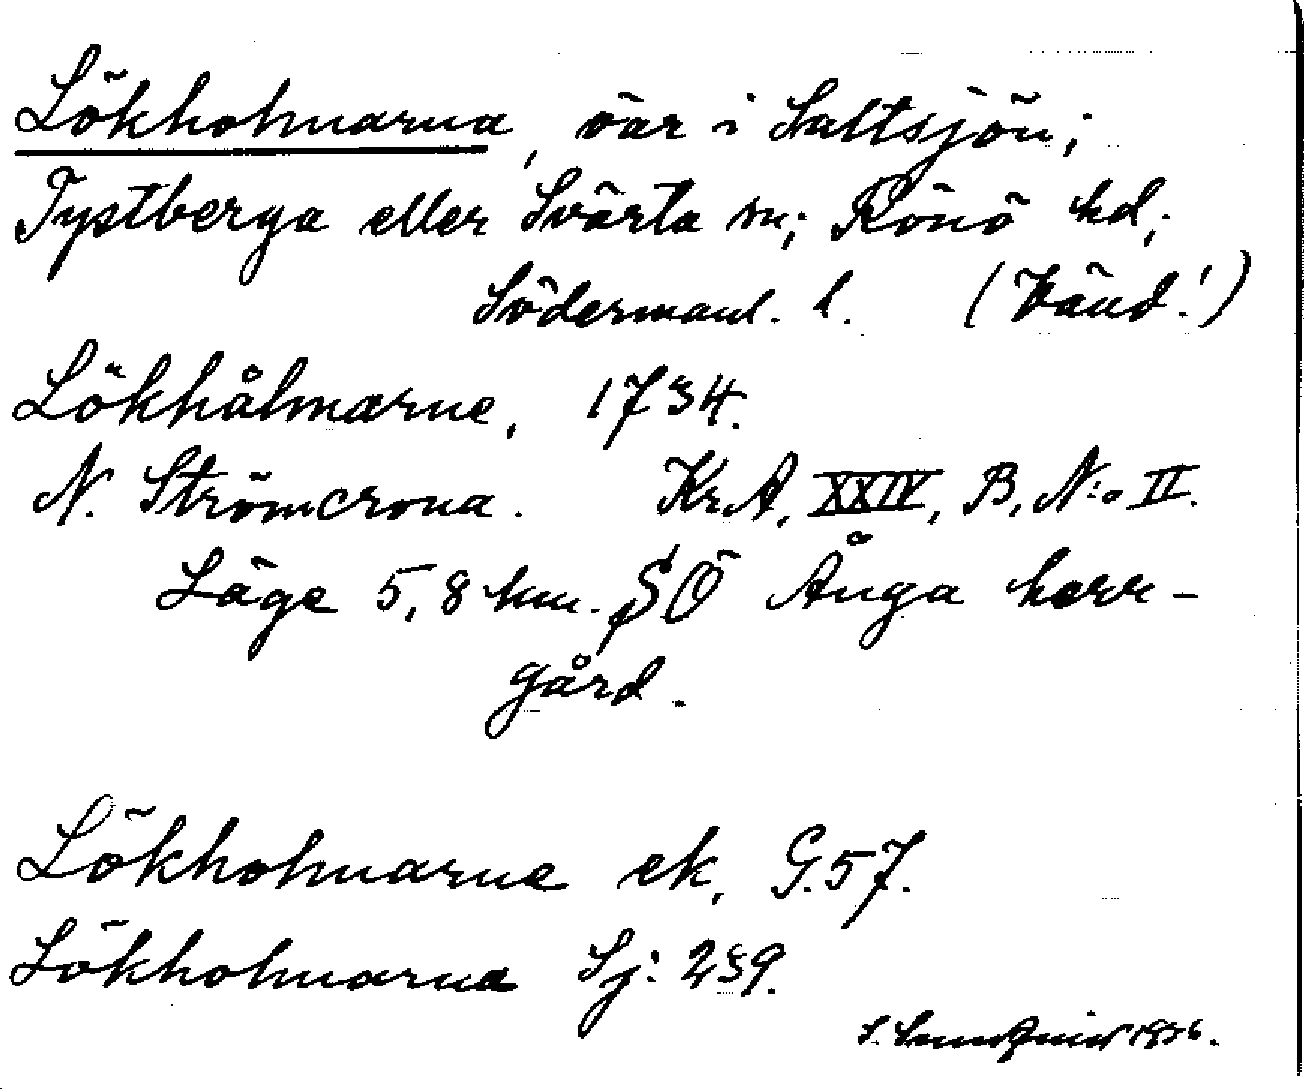 Lökholmarna, öar i Saltsjön;
Tystberga eller Svärta sn; Rönö hd;
Södermanl. l. (Vänd!)
Lökhålmarne, 1734.
N. Strömcrona. Kr.A, XXIV, B, N:o II.
Läge 5,8 km. SÖ Ånga herr-
gård.
Lökholmarne ek, G.57.
Lökholmarna Sj: 239.